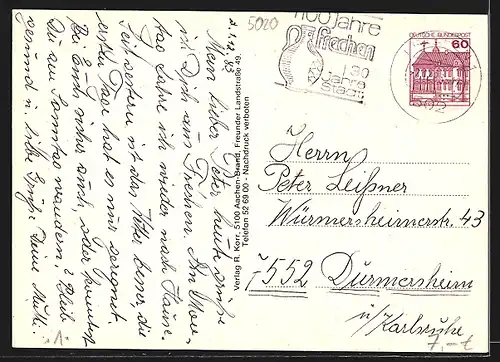 5020
1100 Jahre
Frechen
30
Jahre
Stadt
DEUTSCHE BUNDESPOST
60
502
d. 1. 12. 82
Mein lieber Peter, heute grüße
ich Dich aus Frechen. Am Mon-
tag fahre ich wieder nach Hause.
Seit gestern ist das Wetter besser, die
ersten Tage hat es nur geregnet.
Bei Euch sicher auch, oder konntest
Du am Sonntag wandern? Bleib
gesund u. liebe Grüße Deine Mutti.
Verlag R. Korr, 5100 Aachen-Brand, Freunder Landstraße 49,
Telefon 52 69 00 - Nachdruck verboten
Herrn
Peter Leißner
Würmersheimerstr. 43
7552 Durmersheim
ü/Karlsruhe
7,- €
"1"